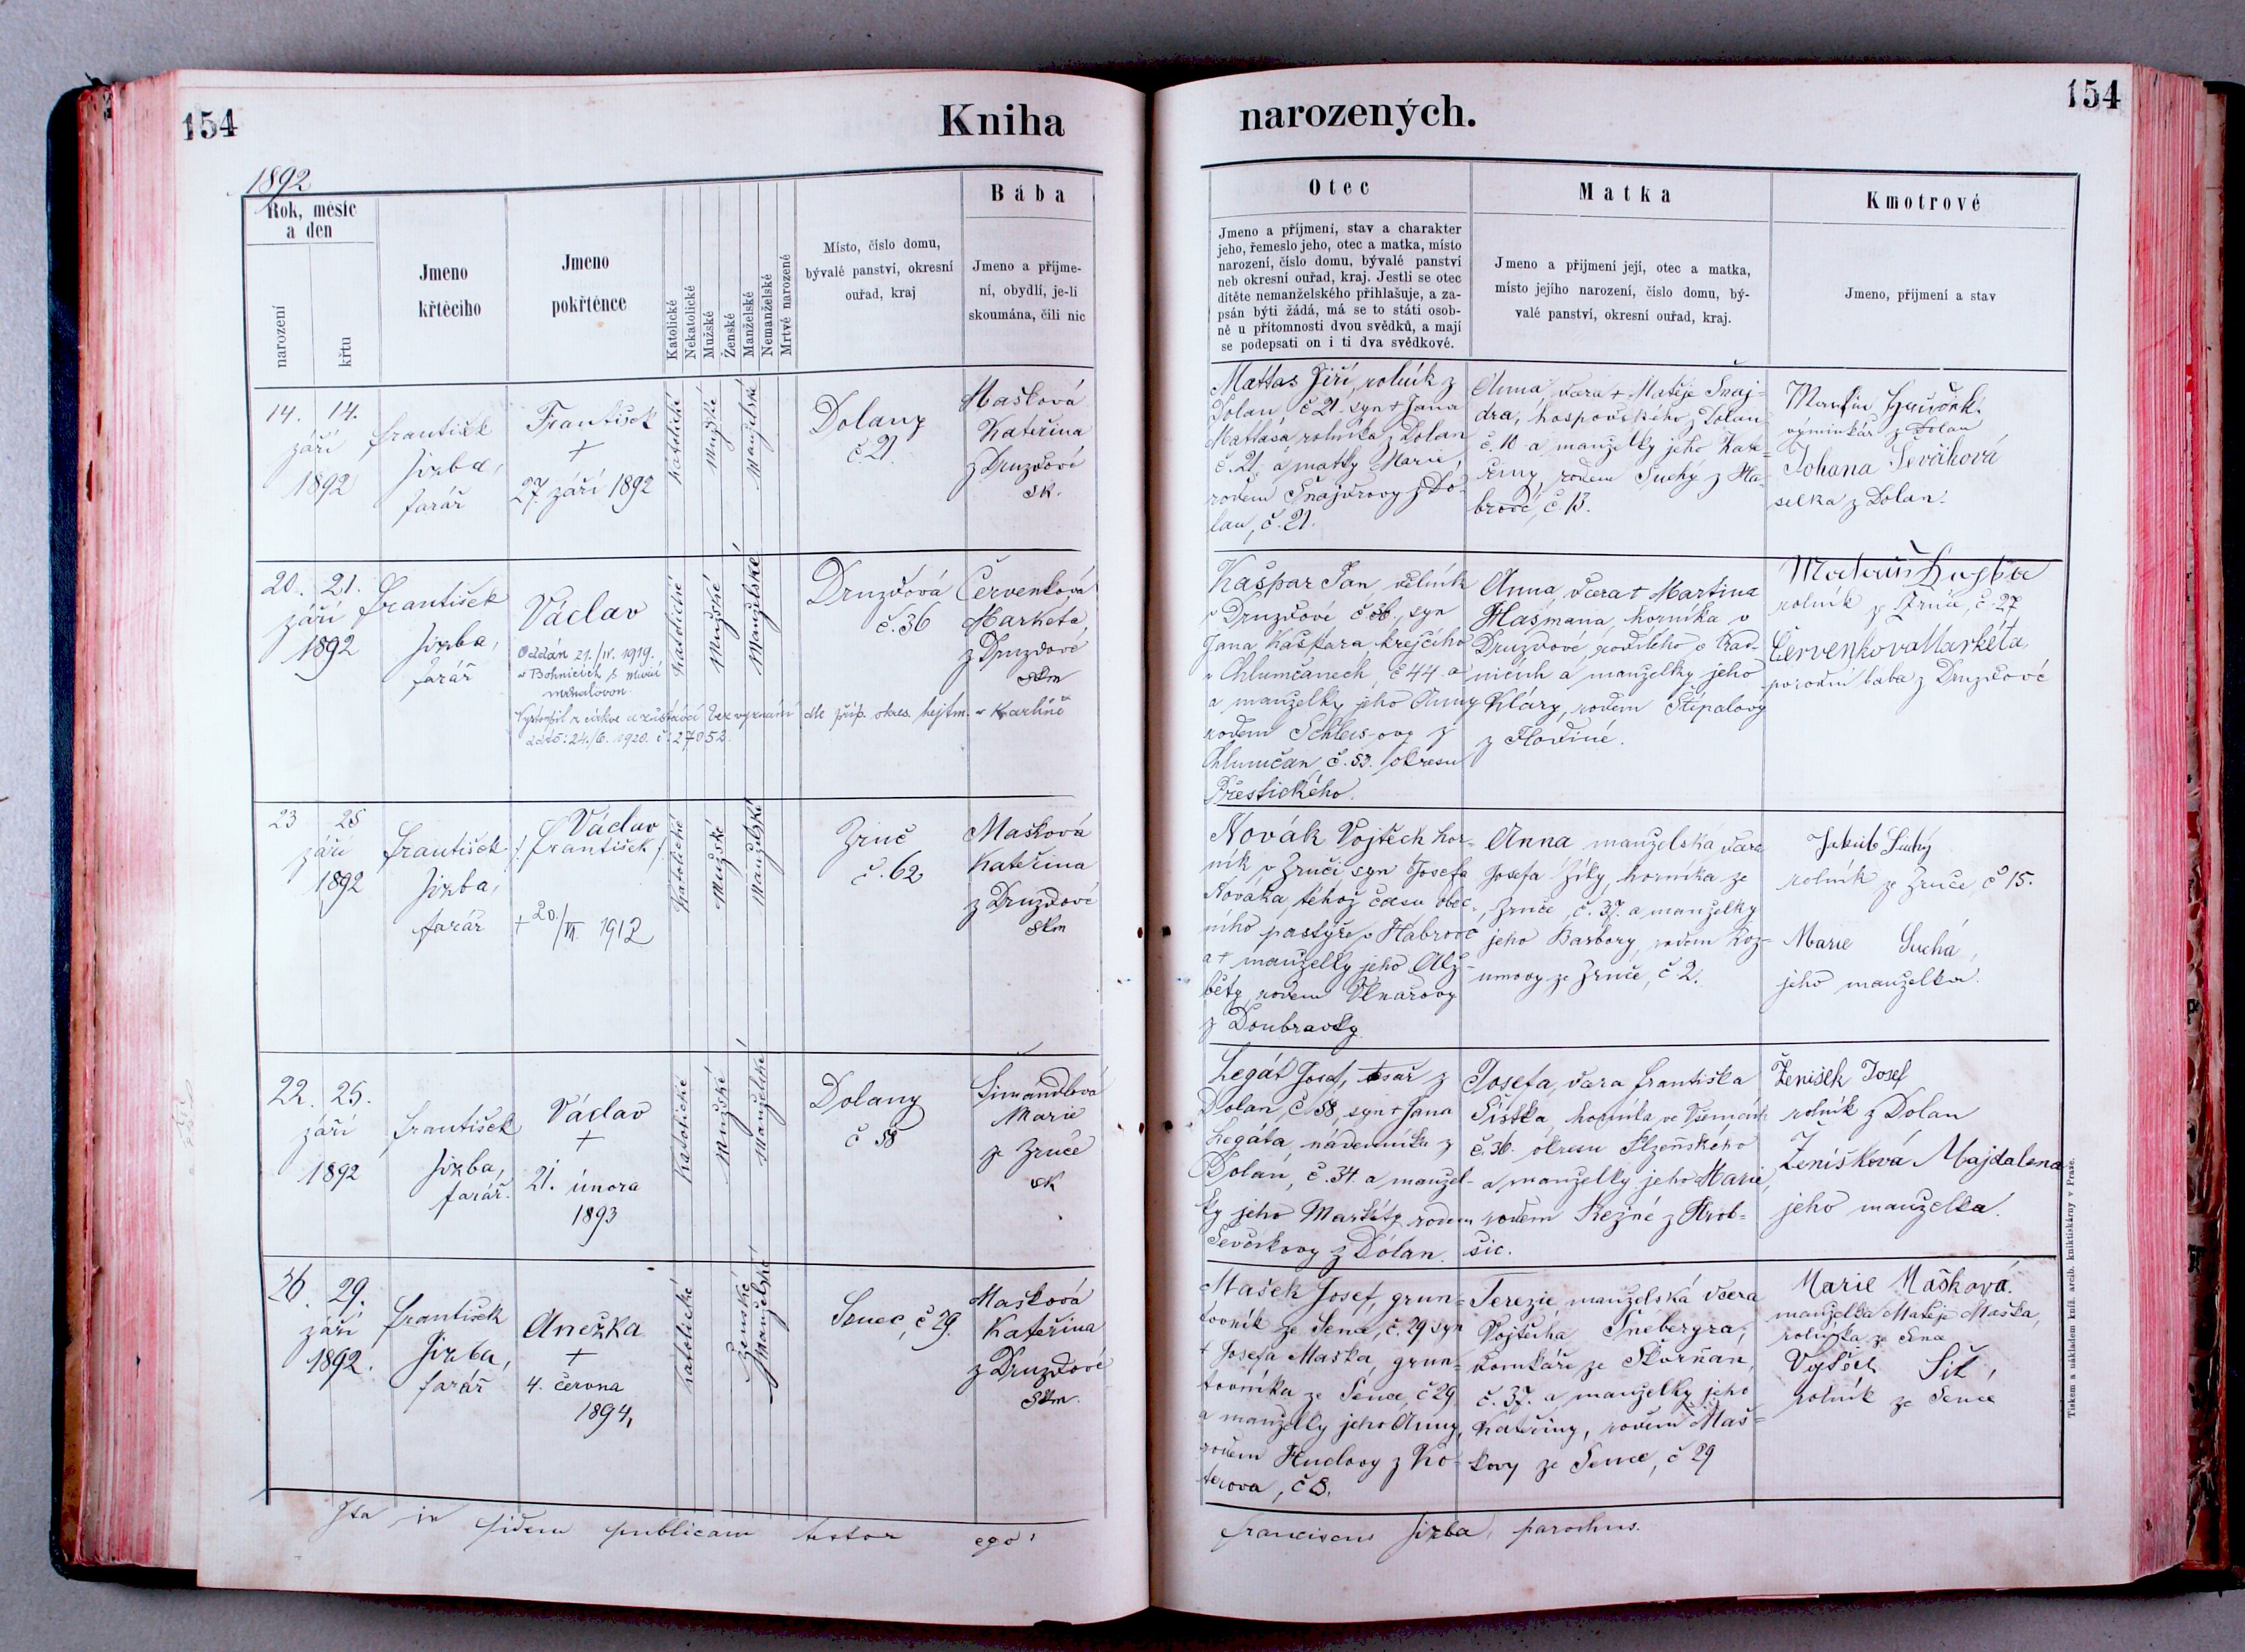 154
Kniha
narozených.
154
1892
Rok, měsíc
a den
narození
křtu
Jmeno
křtěcího
Jmeno
pokřtěnce
Katolické
Nekatolické
Mužské
Ženské
Manželské
Nemanželské
Mrtvě narozené
Místo, číslo domu,
bývalé panství, okresní
ouřad, kraj
Bába
Jmeno a příjme-
ní, obydlí, je-li
skoumána, čili nic
Otec
Jmeno a příjmení, stav a charakter
jeho, řemeslo jeho, otec a matka, místo
narození, číslo domu, bývalé panství
neb okresní ouřad, kraj. Jestli se otec
dítěte nemanželského přihlašuje, a za-
psán býti žádá, má se to státi osob-
ně u přítomnosti dvou svědků, a mají
se podepsati on i ti dva svědkové.
Matka
Jmeno a příjmení její, otec a matka,
místo jejího narození, číslo domu, bý-
valé panství, okresní ouřad, kraj.
Kmotrové
Jmeno, příjmení a stav
14. 14.
září
1892
František
Jirba,
farář
František
+
27 září 1892
Katolické
Mužské
Manželské
Dolany
č. 21.
Mašková
Kateřina
z Druzdové
sk.
Mattas Jiří, rolník z
Dolan č 21. syn + Jana
Mattasa rolníka z Dolan
č. 21. a matky Marie,
rodem Šnajdrovy z Do-
lan, č. 21.
Anna, dcera + Matěje Šnaj-
dra, hospodského z Dolan
č. 10 a manželky jeho Kate-
řiny, rodem Suchý z Ha-
brové, č 13.
Martin
výminkář z Dolan
Johana Ševčíková
selka z Dolan.
20. 21.
září
1892
František
Jirba,
farář
Václav
Oddán 21./IV. 1919.
v Bohnicích s Marií
Vystoupil z církve a zůstává bez vyznání dle příp. okres. hejtm. v Karlíně
dato: 24./6. 1920. č: 27052.
Katolické
Mužské
Manželské
Druzdová
č. 36
Červenková
Marketa
z Druzdové
skm
Kašpar Jan, dělník
v Druzdové č 36, syn
Jana Kašpara, krejčího
v Chlumčanech, č 44 a
a manželky jeho Anny
rodem Schleis-ovy z
Chlumčan, č. 53. okresu
Přestického.
Anna, dcera + Martina
Hasmana, horníka v
Druzdové, rodilého z Kad-
nicích a manželky jeho
Kláry, rodem Štěpalovy
z Hodiné.
rolník ze Zruče, č. 27
Červenkova Markéta,
porodní baba z Druzdové
23 25
září
1892
František
Jirba,
farář
Václav
/František/
+ 20./VI. 1912
Katolické
Mužské
Manželské
Zruč
č. 62
Mašková
Kateřina
z Druzdové
skm
Novák Vojtěch hor-
ník v Zruči syn Josefa
Nováka, téhož času obec-
ního pastýře v Habrové
a + manželky jeho Alž-
běty, rodem Vlnařovy
z Doubravky.
Anna manželská dcera
Josefa Zíky, horníka ze
Zruče, č. 37. a manželky
jeho Barbory, rodem Roz-
umovy ze Zruče, č. 2.
Jakub Suchý
rolník ze Zruče, č 15.
Marie Suchá,
jeho manželka.
22. 25.
září
1892
František
Jirba,
farář.
Václav
+
21. února
1893
Katolické
Mužské
Manželské
Dolany
č 58
Šimandlová
Marie
ze Zruče
sk
Legát Josef, tesař z
Dolan, č. 58, syn + Jana
Legáta, nádenníka z
Dolan, č. 34. a manžel-
ky jeho Markéty rodem
Ševčíkovy z Dolan.
Josefa, dcera Františka
Šístka, horníka ve
č. 36. okresu Plzeňského
a manželky jeho Marie,
rodem Kejné z Hrob-
šic.
Ženíšek Josef
rolník z Dolan
Ženíšková Majdalena
jeho manželka.
26. 29.
září
1892.
František
Jirba,
farář
Anežka
+
4. června
1894,
Katolické
Ženské
Manželské
Senec, č 29.
Mašková
Kateřina
z Druzdové
skm.
Mašek Josef, grun-
tovník ze Sence, č. 29 syn
+ Josefa Maška, grun-
tovníka ze Sence, č 29
a manželky jeho Anny,
rodem Hudovy z Ko-
terova, č 8.
Terezie manželská dcera
Vojtěcha Šnebergra,
domkáře ze Skvrňan,
č. 37. a manželky jeho
Kateřiny, rodem Maš-
kovy ze Sence, č 29
Marie Mašková.
manželka Matěje Maška,
rolníka ze Sence
Vojtěch Šik,
rolník ze Sence
Ita in fidem publicam testor ego:
Franciscus Jirba, parochus.
Tiskem a nákladem kníž. arcib. knihtiskárny v Praze.